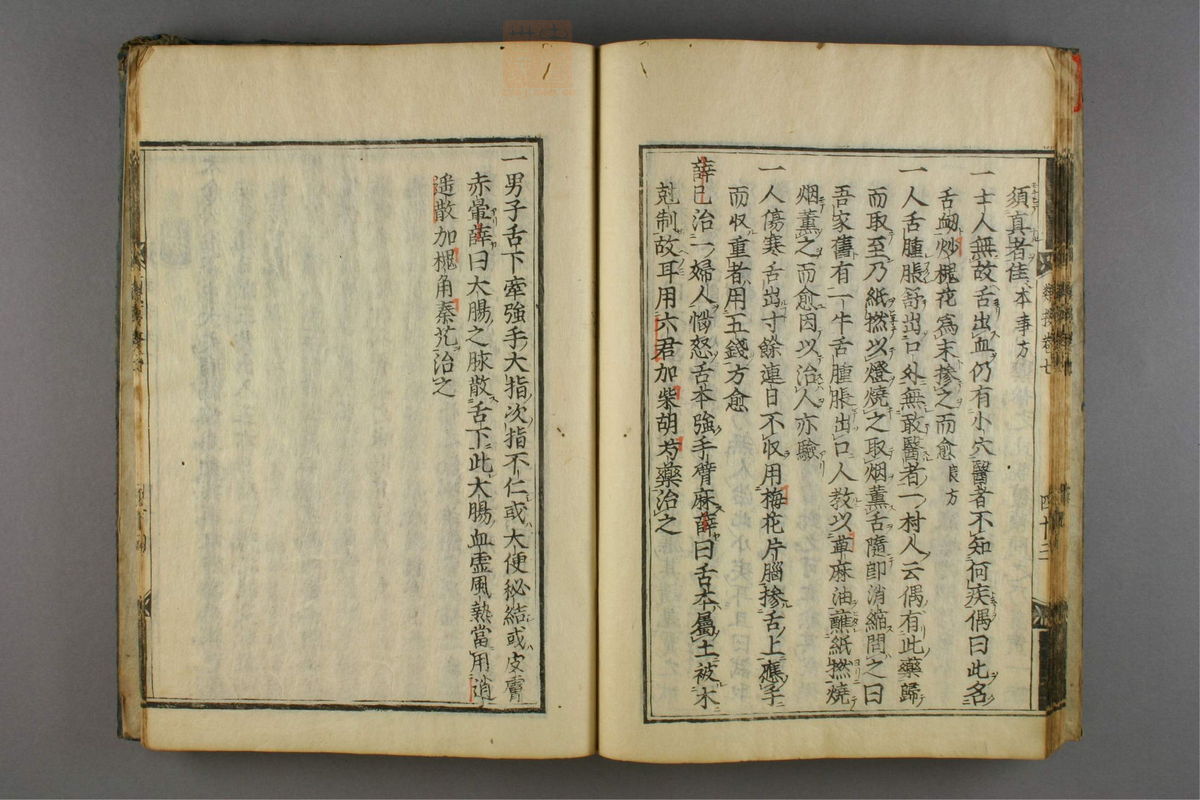 須真者佳本事方
一士人無故舌出血仍有小穴醫者不知何疾偶曰此名
舌衂炒槐花爲末摻之而愈良方
一人舌腫脹舒出口外無敢醫者一村人云偶有此藥歸
而取至乃紙撚以燈燒之取烟薰舌隨即消縮問之曰
吾家舊有一牛舌腫脹出口人教以萆麻油蘸紙撚燒
烟薰之而愈因以治人亦驗
一人傷寒舌出寸餘連日不収用梅花片腦摻舌上應手
而収重者用五錢方愈
薛己治一婦人惱怒舌本強手臂麻薛曰舌本屬土被木
尅制故耳用六君加柴胡芍藥治之
四十三
一男子舌下牽強手大指次指不仁或大便秘結或皮膚
赤暈薛曰大腸之脉散舌下此大腸血虛風熱當用逍
遥散加槐角秦艽治之